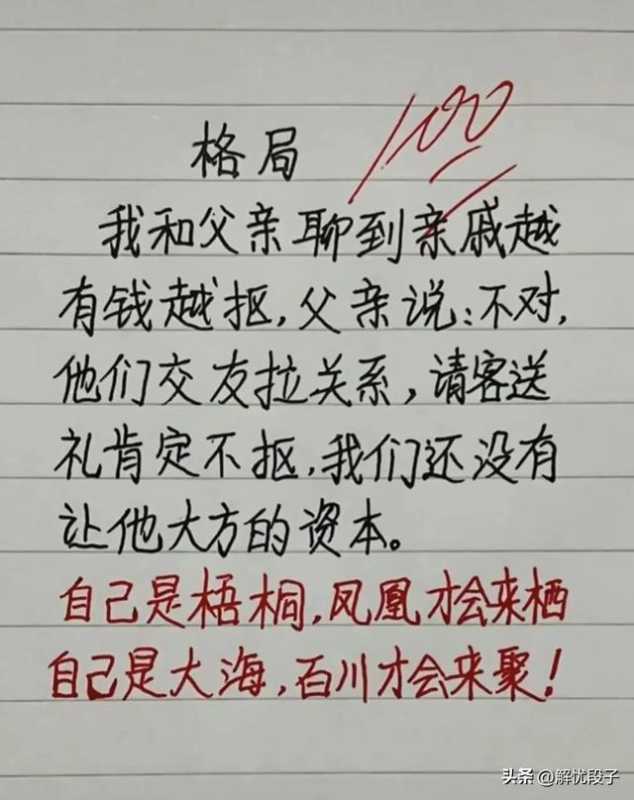 格局
100
我和父亲聊到亲戚越
有钱越抠,父亲说:不对,
他们交友拉关系,请客送
礼肯定不抠,我们还没有
让他大方的资本。
自己是梧桐,凤凰才会来栖
自己是大海,百川才会来聚!
头条 @解忧段子